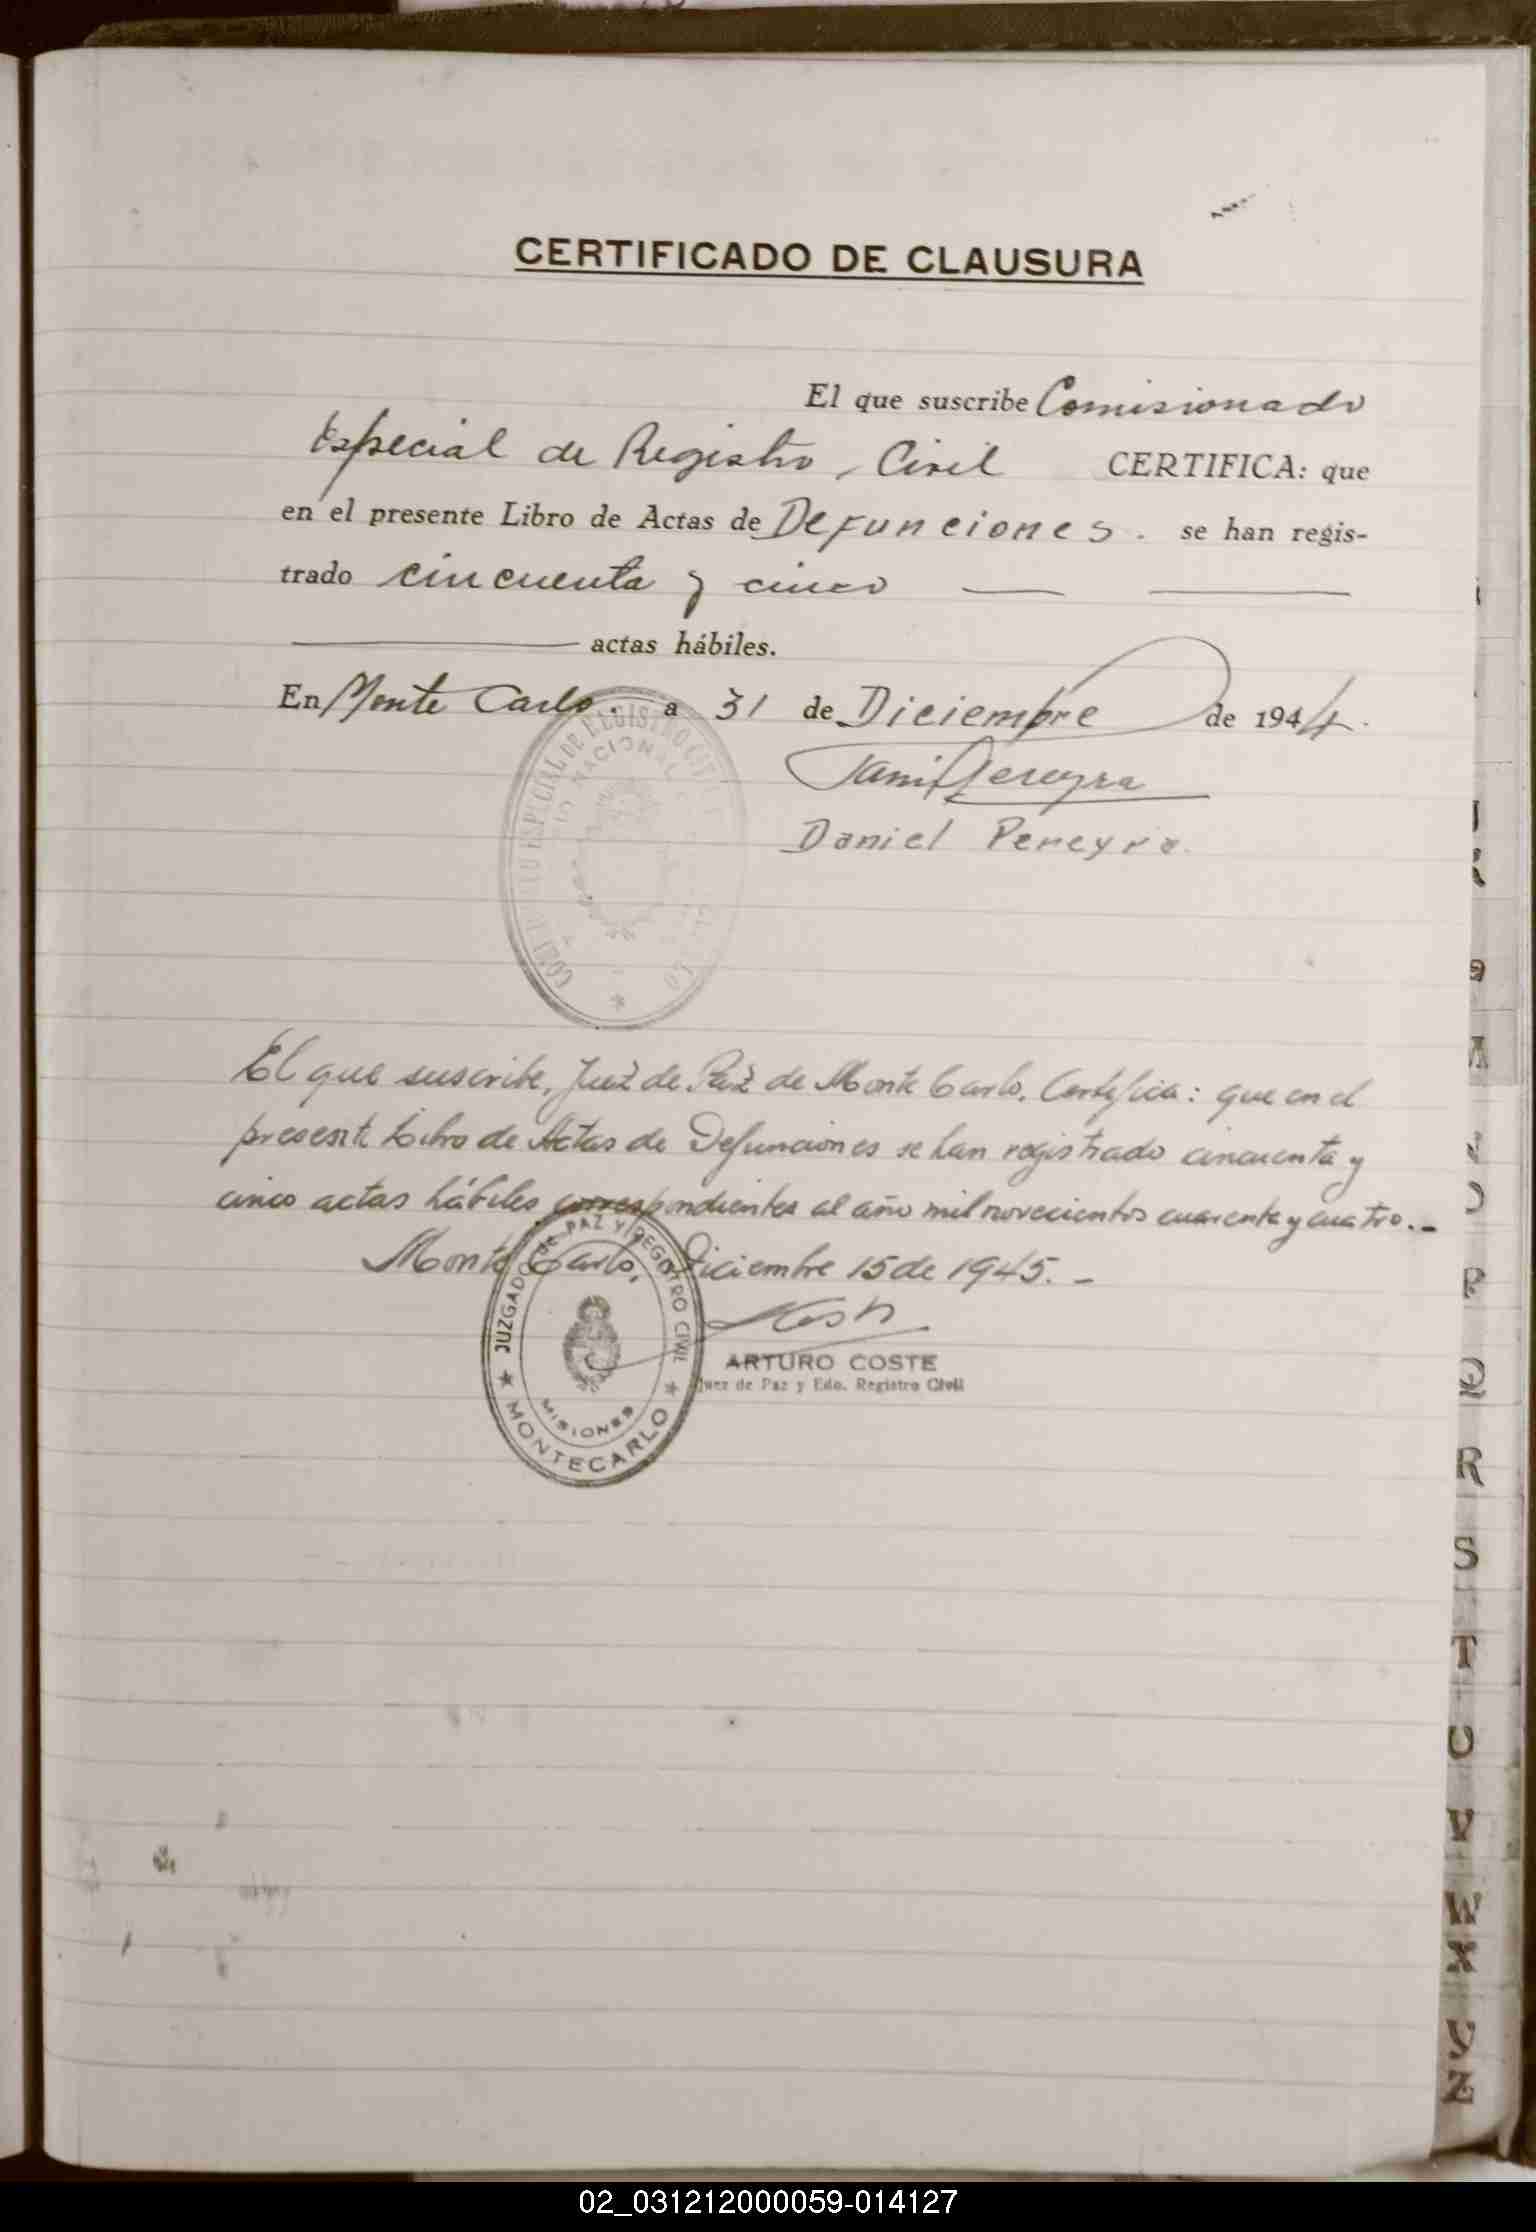 CERTIFICADO DE CLAUSURA
El que suscribe Comisionado
Especial de Registro Civil CERTIFICA: que
en el presente Libro de Actas de Defunciones. se han regis-
trado cincuenta y cinco
actas hábiles.
En Monte Carlo. a 31 de Diciembre de 1944.
Daniel Pereyra.
ESPECIAL DE REGISTRO
NACIONAL
El que suscribe, Juez de Paz de Monte Carlo, Certifica: que en el
presente Libro de Actas de Defunciones se han registrado cincuenta y
cinco actas hábiles correspondientes al año mil novecientos cuarenta y cuatro.-
Monte Carlo, Diciembre 15 de 1945.-
JUZGADO DE PAZ Y REGISTRO CIVIL
MISIONES
★ MONTECARLO ★
ARTURO COSTE
Juez de Paz y Edo. Registro Civil
Q
R
S
T
U
V
W
X
Y
Z
02_031212000059-014127